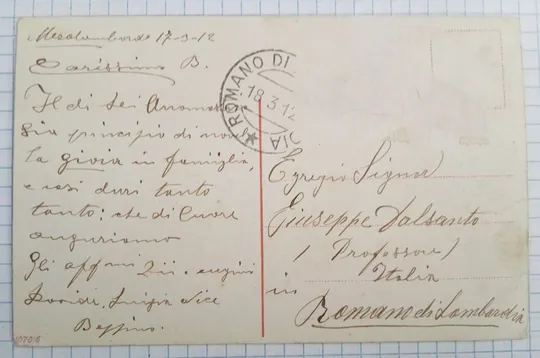 Mezolombardo 17-3-12
Carissimo B.
Il di Lei Onomastico
sia principio di novella
la gioia in famiglia,
e così duri tanto
tanto: che di Cuore
auguriamo
Gli affmi Zii. cugini
Luigia Nice
Beppino.
ROMANO DI
18.3.12
DIA
Egregio Signor
Giuseppe Dalsanto
(Professore)
Italia
in
Romano di Lombardia